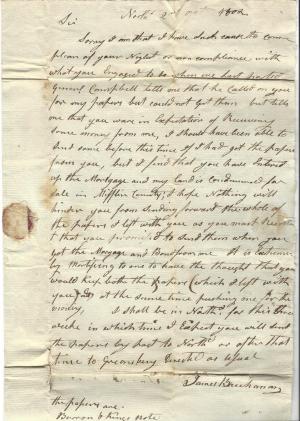 Northd 2nd 1802
Sir
Sorry I am that I have Such cause to com
plean of your Neglet or non compliance with
what you Engaged to do when we last parted
General Campbell tells me that he Called on you
for my papers but could not get them but tells
me that you ware in Expectation of Receiving
some money from me, I should have been able to
send some before this time if I had got the papers
from you, but I find that you have Entered
up the Mortgage and my Land is Condemned for
sale in Mifflin County, I hope Nothing will
hinder you from Sending forward the whole of
the papers I left with you as you must Recollect
that you promised to Send them when you
got the Morgage and Bond from me It is Extreme
ly Mortifying to one to have the thought that you
would keep both the papers (which I left with
you) and at the same time pushing me for the
money, I shall be in Northd for this three
weeks in which time I Expect you will send
the papers by post to Northd or after that
time to Greensburg Directed as usual
James Buchanan
the papers are
Note